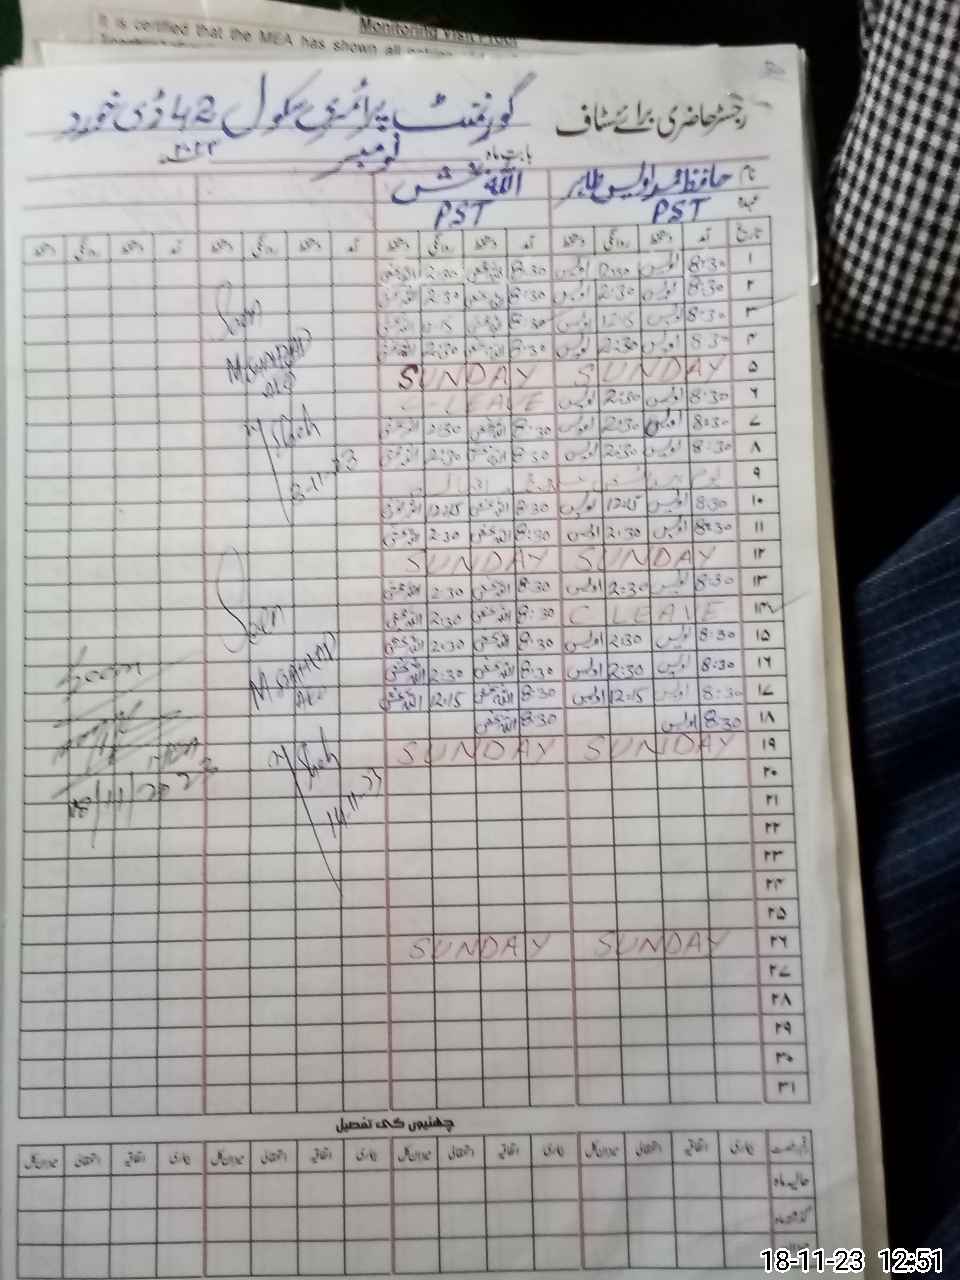 Monitoring Visit Proof
It is certified that the MEA has shown all
رجسٹر حاضری برائے سٹاف گورنمنٹ پرائمری سکول 42 ڈی خورد
بابت ماہ نومبر
نام حافظ محمد اویس طاہر اللہ بخش
عہدہ PST PST
تاریخ آمد دستخط روانگی دستخط آمد دستخط روانگی دستخط آمد دستخط روانگی دستخط آمد دستخط روانگی دستخط
۱ 8:30 اویس 2:30 اویس 8:30 اللہ بخش 2:30 اللہ بخش
۲ 8:30 اویس 2:30 اویس 8:30 اللہ بخش 2:30 اللہ بخش
۳ 8:30 اویس 12:15 اویس 8:30 اللہ بخش 12:15 اللہ بخش
۴ 8:30 اویس 2:30 اویس 8:30 اللہ بخش 2:30 اللہ بخش
۵ SUNDAY SUNDAY
۶ 8:30 اویس 2:30 اویس C-LEAVE
۷ 8:30 اویس 2:30 اویس 8:30 اللہ بخش 2:30 اللہ بخش
۸ 8:30 اویس 2:30 اویس 8:30 اللہ بخش 2:30 اللہ بخش
۹
۱۰ 8:30 اویس 12:15 اویس 8:30 اللہ بخش 12:15 اللہ بخش
۱۱ 8:30 اویس 2:30 اویس 8:30 اللہ بخش 2:30 اللہ بخش
۱۲ SUNDAY SUNDAY
۱۳ 8:30 اویس 2:30 اویس 8:30 اللہ بخش 2:30 اللہ بخش
۱۴ C LEAVE 8:30 اللہ بخش 2:30 اللہ بخش
۱۵ 8:30 اویس 2:30 اویس 8:30 اللہ بخش 2:30 اللہ بخش
۱۶ 8:30 اویس 2:30 اویس 8:30 اللہ بخش 2:30 اللہ بخش
۱۷ 8:30 اویس 12:15 اویس 8:30 اللہ بخش 12:15 اللہ بخش
۱۸ 8:30 اویس 8:30 اللہ بخش
۱۹ SUNDAY SUNDAY
۲۰
۲۱
۲۲
۲۳
۲۴
۲۵
۲۶ SUNDAY SUNDAY
۲۷
۲۸
۲۹
۳۰
۳۱
Seen
Seen
14-11-23
Seen
18/11/2023
چھٹیوں کی تفصیل
حالیہ ماہ
گذشتہ ماہ
18-11-23 12:51